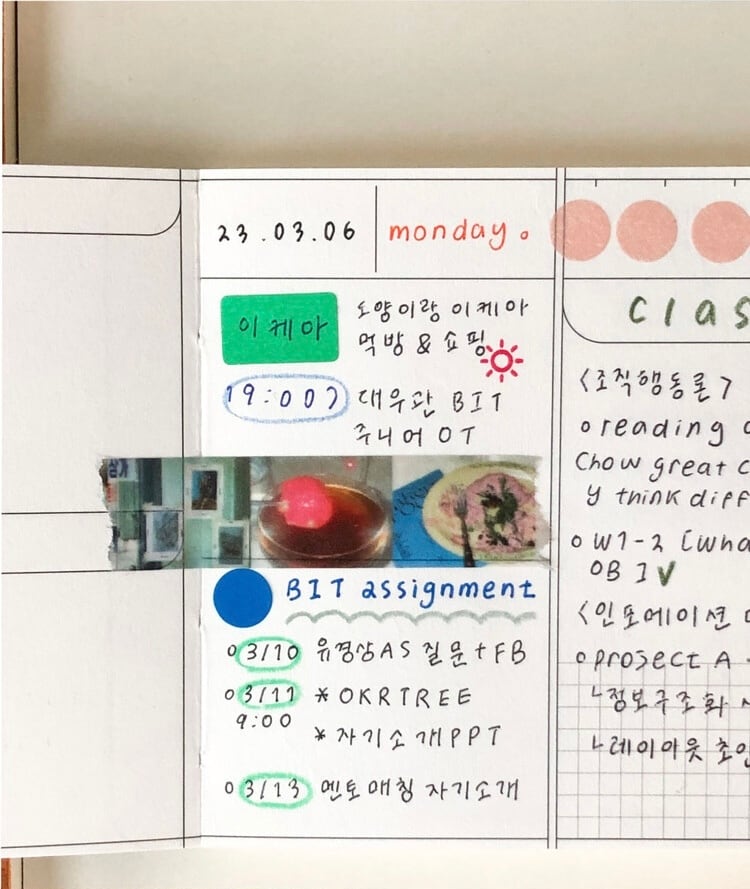 23.03.06
monday.
이케아
도양이랑 이케아
먹방 & 쇼핑
19:00
대우관 BIT
주니어 OT
BIT assignment
3/10 유경상AS 질문+FB
3/11 * OKRTREE
9:00
* 자기소개PPT
3/13 멘토매칭 자기소개
Clas
<조직행동론>
reading
Chow great c
y think diff
W1-2 [Wha
OB] ✓
<인포메이션
project A
ㄴ정보구조화
ㄴ레이아웃 초안